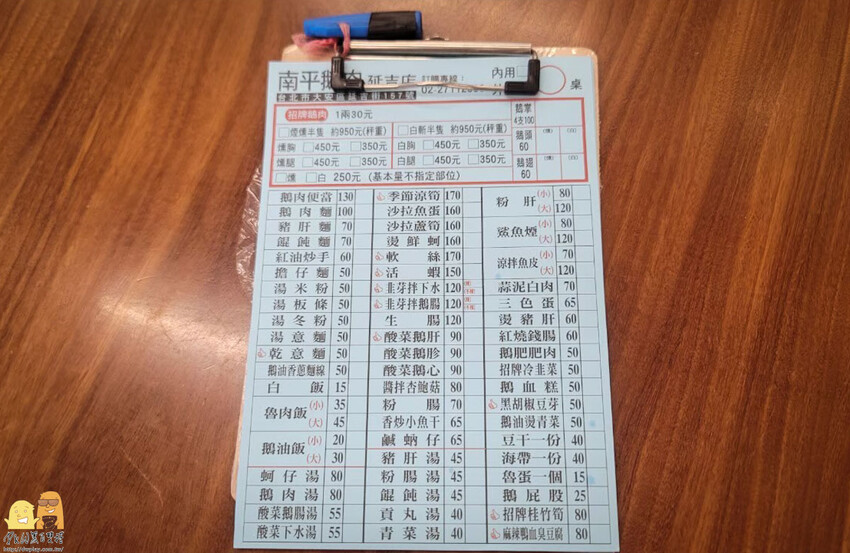 南平鵝肉 延吉店 訂購專線: 內用 桌
台北市大安區延吉街157號 02-2711
招牌鵝肉 1兩30元
煙燻半隻 約950元(秤重) 白斬半隻 約950元(秤重)
燻胸 450元 350元 白胸 450元 350元
燻腿 450元 350元 白腿 450元 350元
燻 白 250元 (基本量不指定部位)
鵝掌 4支100
鵝頭 60 (燻) (白)
鵝翅 60 (燻) (白)
鵝肉便當 130
鵝肉麵 100
豬肝麵 70
餛飩麵 70
紅油炒手 60
擔仔麵 50
湯米粉 50
湯板條 50
湯冬粉 50
湯意麵 50
乾意麵 50
鵝油香蔥麵線 50
白飯 15
魯肉飯 (小) 35
(大) 45
鵝油飯 (小) 20
(大) 30
蚵仔湯 80
鵝肉湯 80
酸菜鵝腸湯 55
酸菜下水湯 55
季節涼筍 170
沙拉魚蛋 160
沙拉蘆筍 160
燙鮮蚵 160
軟絲 170
活蝦 150
韭芽拌下水 120
韭芽拌鵝腸 120
生腸 120
酸菜鵝肝 90
酸菜鵝胗 90
酸菜鵝心 90
醬拌杏鮑菇 80
粉腸 70
香炒小魚干 65
鹹蚋仔 65
豬肝湯 45
粉腸湯 45
餛飩湯 45
貢丸湯 40
青菜湯 40
粉肝 (小) 80
(大) 120
鯊魚煙 (小) 80
(大) 120
涼拌魚皮 (小) 70
(大) 120
蒜泥白肉 70
三色蛋 65
燙豬肝 60
紅燒錢腸 60
鵝肥肥肉 50
招牌冷韭菜 50
鵝血糕 50
黑胡椒豆芽 50
鵝油燙青菜 50
豆干一份 40
海帶一份 40
魯蛋一個 15
鵝屁股 25
招牌桂竹筍 80
麻辣鴨血臭豆腐 80